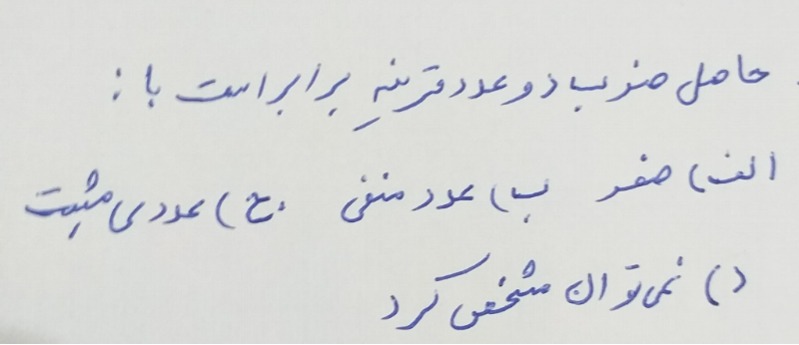 حاصل ضرب دو عدد قرینه برابر است با :
الف) صفر ب) عدد منفی ج) عددی مثبت
د) نمی توان مشخص کرد